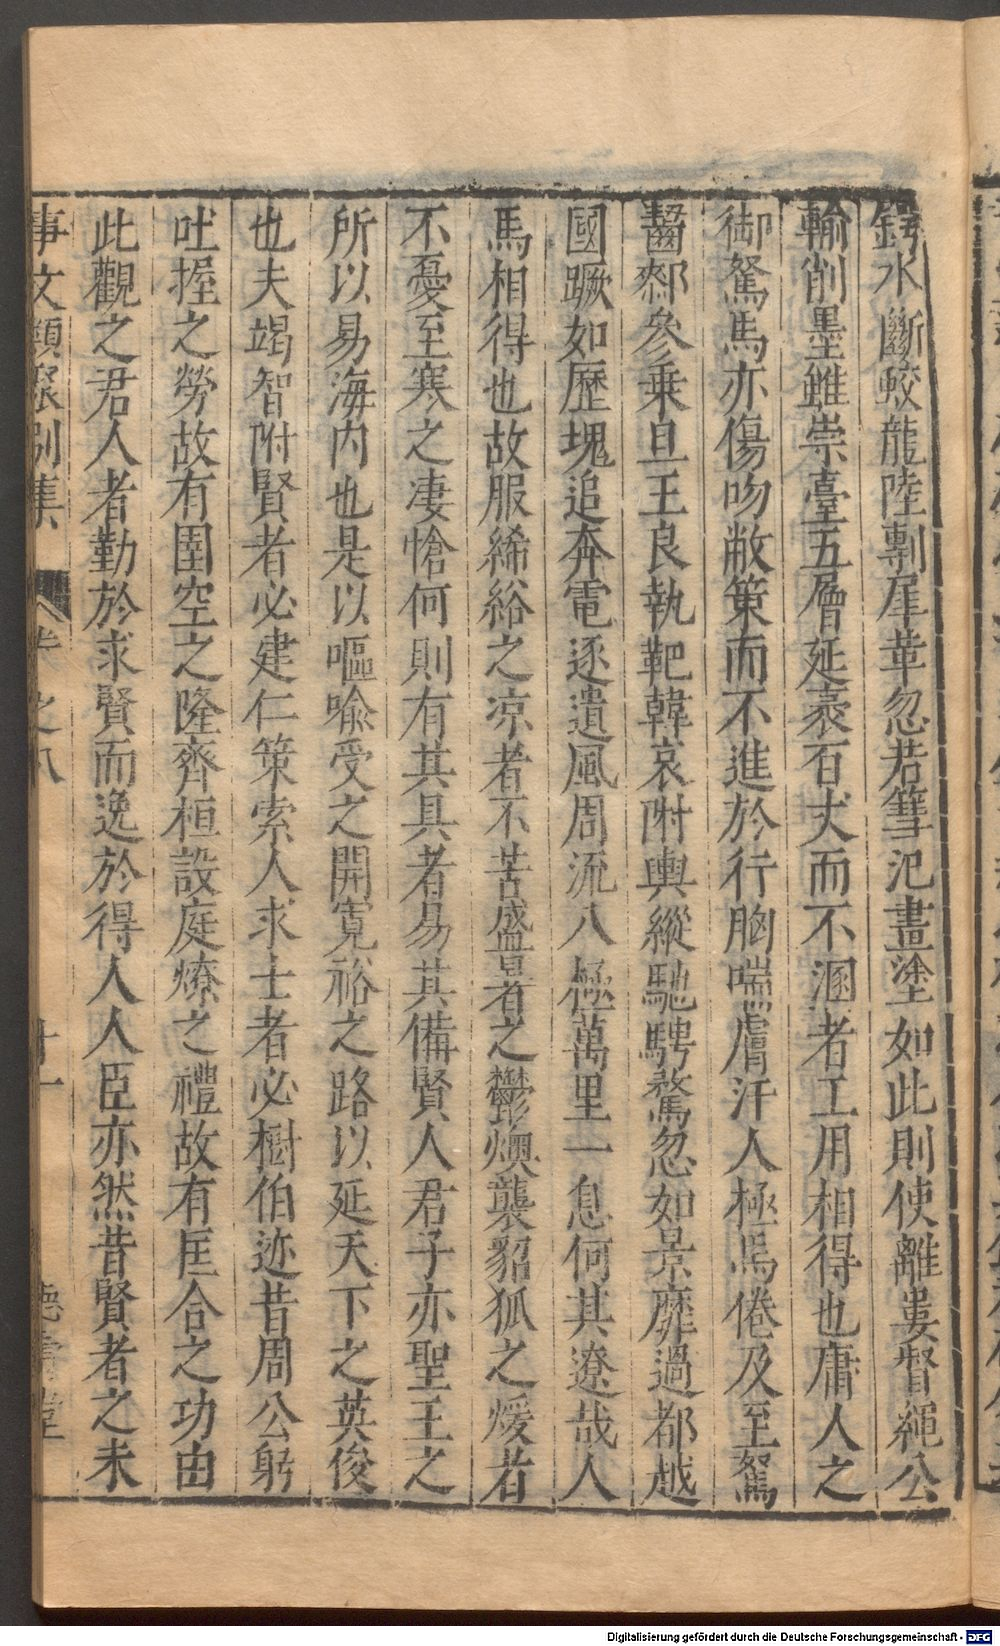 鍔水斷蛟龍陸剸犀革忽若篲氾畫塗如此則使離婁督繩公
輸削墨雖崇臺五層延袤百丈而不溷者工用相得也庸人之
御駑馬亦傷吻敝策而不進於行胸喘膚汗人極馬倦及至駕
齧䣛參乗旦王良執靶韓哀附輿縱馳騁騖忽如景靡過都越
國蹶如歷塊追奔電逐遺風周流八極萬里一息何其遼哉人
馬相得也故服絺綌之凉者不苦盛暑之鬱燠襲貂狐之煖者
不憂至寒之凄愴何則有其具者易其備賢人君子亦聖王之
所以易海内也是以嘔喻受之開寛裕之路以延天下之英俊
也夫竭智附賢者必建仁策索人求士者必樹伯迹昔周公躬
吐握之勞故有圄空之隆齊桓設庭燎之禮故有匡合之功由
此觀之君人者勤於求賢而逸於得人人臣亦然昔賢者之未
事文類聚别集 卷之八 十一 德壽堂
Digitalisierung gefördert durch die Deutsche Forschungsgemeinschaft - DFG